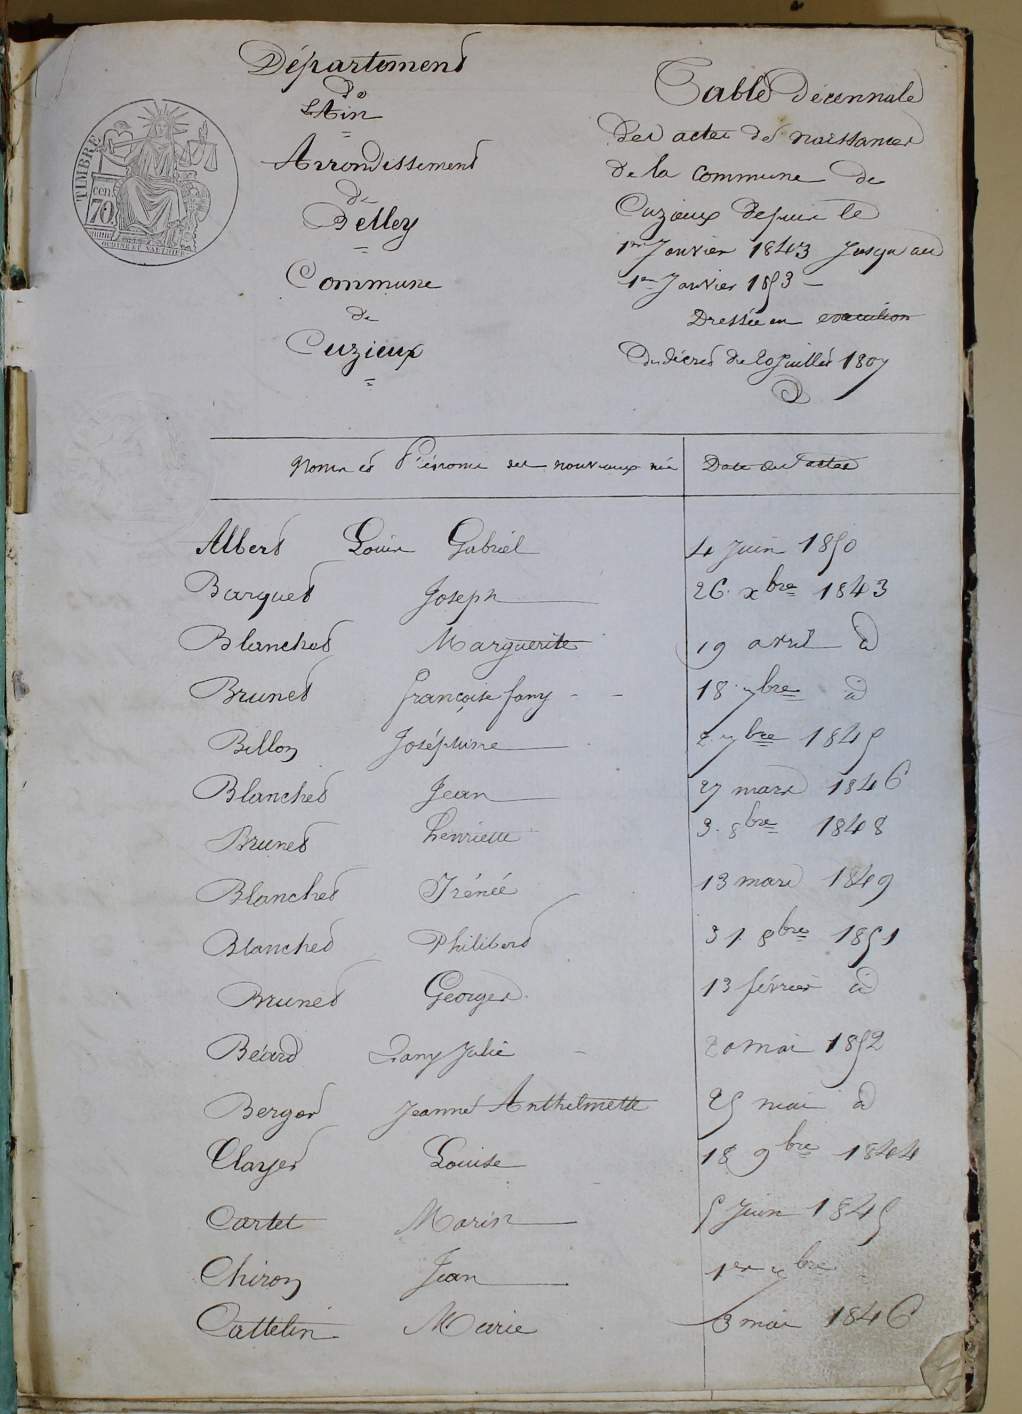 Département
de
l'Ain
Arrondissement
de
Belley
Commune
de
Cuzieux
TIMBRE
cen
70
Table décennale
des actes de naissances
de la Commune de
Cuzieux depuis le
1er Janvier 1843 Jusqu'au
1er Janvier 1853
Dressée en execution
du décret du 20 Juillet 1807
Noms et Prénoms des nouveaux nés Date des actes
Albert Louis Gabriel 4 Juin 1850
Barquet Joseph 26 xbre 1843
Blanchet Marguerite 19 avril d
Brunet françoise fany 18 7bre d
Billon Joséphine 2 7bre 1845
Blanchet Jean 27 mars 1846
Brunet henriette 3 8bre 1848
Blanchet Irénée 13 mars 1849
Blanchet Philibert 31 8bre 1851
Brunet Georges 13 février d
Béard fany Julie 20 mai 1852
Berger Jeanne Anthelmette 25 mai d
Clayet Louise 18 9bre 1844
Cartet Marin 5 Juin 1845
Chiron Jean 1er bre
Cattelin Marie 3 mai 1846